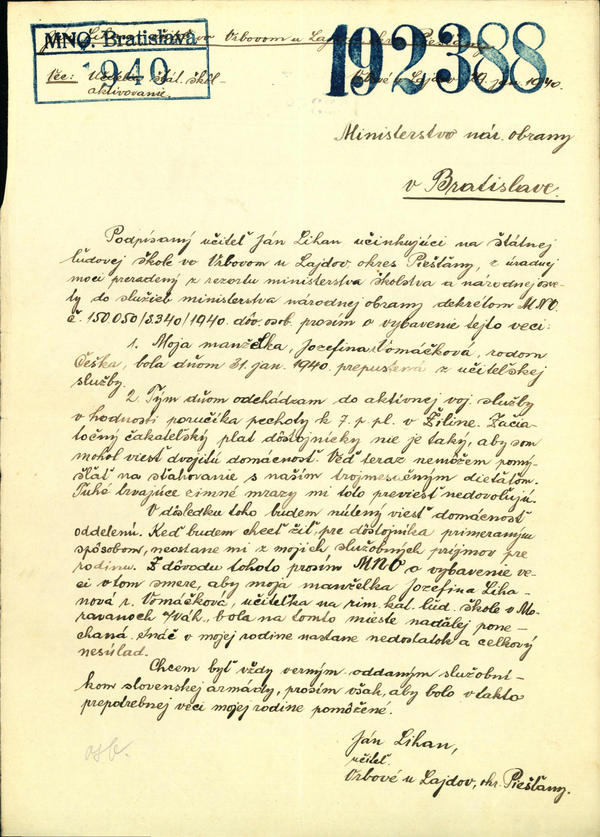 MNO. Bratislava
1940
192388
Vrbovom u Lajdov, okr. Piešťany
Vec: štát. škôl-
aktivovanie.
Vrbové u Lajdov jan. 1940.
Ministerstvo nár. obrany
v Bratislave.
Podpísaný učiteľ Ján Lihan učinkujúci na štátnej
ľudovej škole vo Vrbovom u Lajdov, okres Piešťany, z úradnej
moci preradený z rezortu ministerstva školstva a národnej osve-
ty do služieb ministerstva národnej obrany dekrétom MNO.
č. 150.050/5.340/1940. dôv. osob. prosím o vybavenie tejto veci:
1. Moja manželka, Jozefina Vomáčková, rodom
Češka, bola dňom 31. jan. 1940. prepustená z učiteľskej
služby.
2. Tým dňom odchádzam do aktívnej voj. služby
v hodnosti poručíka pechoty k 7. p. pl. v Žiline. Začia-
točný čakateľský plat dôstojnícky nie je taký, aby som
mohol viesť dvojitú domácnosť. Veď teraz nemôžem pomý-
šľať na sťahovanie s naším trojmesačným dieťaťom.
Tuhé trvajúce zimné mrazy mi toto previesť nedovoľujú.
V dôsledku toho budem nútený viesť domácnosť
oddelenú. Keď budem chcieť žiť pre dôstojníka primeraným
spôsobom, neostane mi z mojich služobných príjmov pre
rodinu. Z dôvodu tohoto prosím MNO o vybavenie ve-
ci v tom smere, aby moja manželka Jozefina Liha-
nová r. Vomáčková, učiteľka na rím. kat. ľud. škole v Mo-
ravanoch n/Váh., bola na tomto mieste naďalej pone-
chaná. Ináč v mojej rodine nastane nedostatok a celkový
nesúlad.
Chcem byť vždy verným oddaným služobní-
kom slovenskej armády, prosím však, aby bolo v takto
prepotrebnej veci mojej rodine pomôžené.
osb.
Ján Lihan,
učiteľ.
Vrbové u Lajdov, okr. Piešťany.